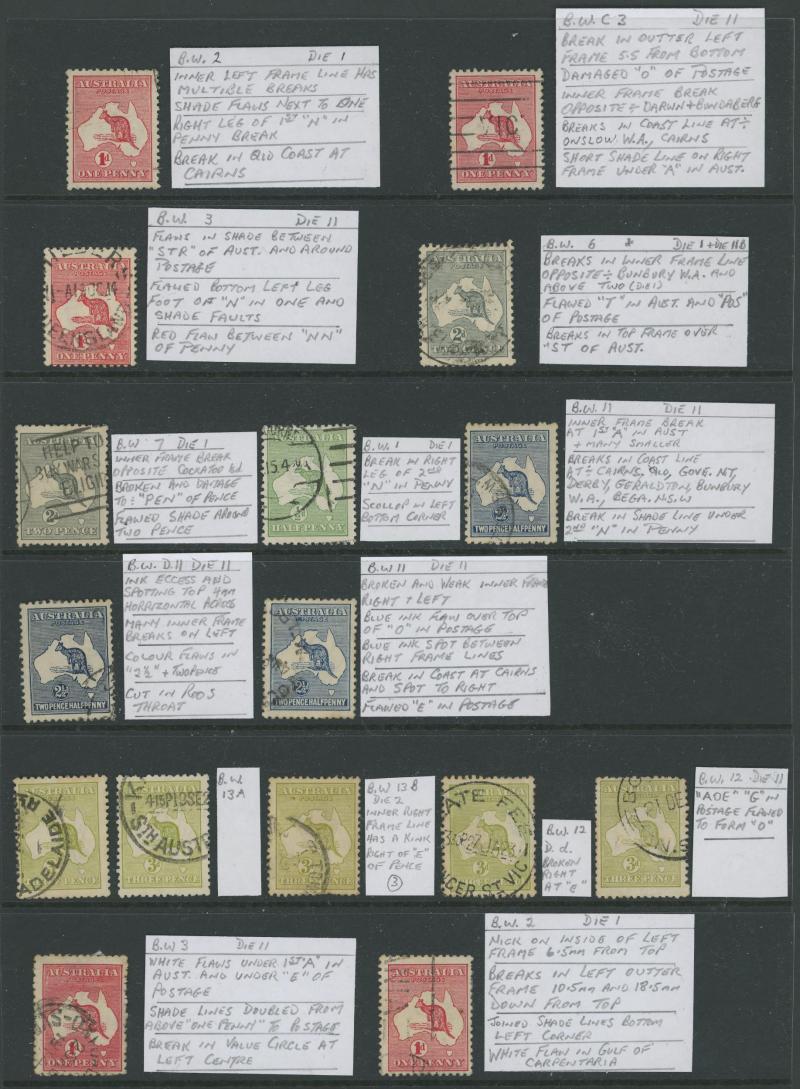 B.W. 2 DIE 1
INNER LEFT FRAME LINE HAS
MULTIBLE BREAKS
SHADE FLAWS NEXT TO ONE
RIGHT LEG OF 1ST "N" IN
PENNY BREAK
BREAK IN QLD COAST AT
CAIRNS
AUSTRALIA
POSTAGE
1D
ONE PENNY
B.W. C 3 DIE 11
BREAK IN OUTTER LEFT
FRAME 5.5 FROM BOTTOM
DAMAGED "O" OF POSTAGE
INNER FRAME BREAK
OPPOSITE ÷ DARWN + BUNDABERG
BREAKS IN COAST LINE AT ÷
ONSLOW W.A., CAIRNS
SHORT SHADE LINE ON RIGHT
FRAME UNDER "A" IN AUST.
AUSTRALIA
POSTAGE
1D
ONE PENNY
B.W. 3 DIE 11
FLAWS IN SHADE BETWEEN
"STR" OF AUST. AND AROUND
POSTAGE
FLAWED BOTTOM LEFT LEG
FOOT OF "N" IN ONE AND
SHADE FAULTS
RED FLAW BETWEEN "NN"
OF PENNY
ONE PENNY
B.W. 6 & DIE 1 + DIE 11B
BREAKS IN INNER FRAME LINE
OPPOSITE ÷ BUNBURY W.A. AND
ABOVE TWO (DIE 1)
FLAWED "T" IN AUST. AND "POS"
OF POSTAGE
BREAKS IN TOP FRAME OVER
"ST OF AUST.
B.W 7 DIE 1
INNER FRAME BREAK
OPPOSITE COCKATOO Isd
BROKEN AND DAMAGE
TO ÷ "PEN" OF PENCE
FLAWED SHADE AROUND
TWO PENCE
AUSTRALIA
HELP TO
WARS
TWO PENCE
B.W. 1 DIE 1
BREAK IN RIGHT
LEG OF 2ND
"N" IN PENNY
SCOLLOP IN LEFT
BOTTOM CORNER
HALF PENNY
B.W. 11 DIE 11
INNER FRAME BREAK
AT 1ST "A" IN AUST
+ MANY SMALLER
BREAKS IN COAST LINE
AT ÷ CAIRNS, QLD, GOVE. NT,
DERBY, GERALDTON, BUNBURY
W.A., BEGA. N.S.W
BREAK IN SHADE LINE UNDER
2ND "N" IN PENNY
AUSTRALIA
POSTAGE
TWO PENCE HALFPENNY
B.W. D.11 DIE 11
INK ECCESS AND
SPOTTING TOP 4MM
HORRIZONTAL ACROSS
MANY INNER FRAME
BREAKS ON LEFT
COLOUR FLAWS IN
"2½" + TWOPENCE
CUT IN ROOS
THROAT
AUSTRALIA
POSTAGE
2½D
TWO PENCE HALFPENNY
B.W 11 DIE 11
BROKEN AND WEAK INNER FRAME
RIGHT + LEFT
BLUE INK FLAW OVER TOP
OF "O" IN POSTAGE
BLUE INK SPOT BETWEEN
RIGHT FRAME LINES
BREAK IN COAST AT CAIRNS
AND SPOT TO RIGHT
FLAWED "E" IN POSTAGE
AUSTRALIA
2½D
TWO PENCE HALFPENNY
ADELAIDE
STH AUST
THREE PENCE
B.W.
13A
B.W 13B
DIE 2
INNER RIGHT
FRAME LINE
HAS A KINK
RIGHT OF "E"
OF PENCE
3
B.W. 12
D. d.
BROKEN
RIGHT
AT "E"
B.W. 12 DIE 11
"ADE" "G" IN
POSTAGE FLAWED
TO FORM "O"
THREE PENCE
B.W 3 DIE 11
WHITE FLAWS UNDER 1ST "A" IN
AUST. AND UNDER "E" OF
POSTAGE
SHADE LINES DOUBLED FROM
ABOVE "ONE PENNY" TO POSTAGE
BREAK IN VALUE CIRCLE AT
LEFT CENTRE
AUSTRALIA
ONE PENNY
B.W. 2 DIE 1
NICK ON INSIDE OF LEFT
FRAME 6.5MM FROM TOP
BREAKS IN LEFT OUTTER
FRAME 10.5MM AND 18.5MM
DOWN FROM TOP
JOINED SHADE LINES BOTTOM
LEFT CORNER
WHITE FLAW IN GULF OF
CARPENTARIA
AUSTRALIA
1D
ONE PENNY